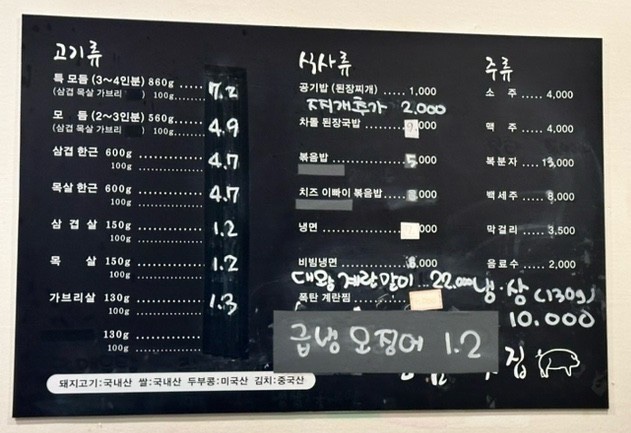 고기류
특 모듬 (3~4인분) 860g ..... 7.2
(삼겹 목살 가브리 ) 100g.....
모 듬 (2~3인분) 560g ....... 4.9
(삼겹 목살 가브리 ) 100g.....
삼겹 한근 600g ............ 4.7
100g ............
목살 한근 600g ............ 4.7
100g ............
삼 겹 살 150g ............ 1.2
100g ............
목 살 150g ............ 1.2
100g ............
가브리살 130g ............ 1.3
100g ............
130g ............
100g ............
식사류
공기밥 (된장찌개) ..... 1,000
찌개추가 2.000
차돌 된장국밥 ........ 9,000
볶음밥 ............. 5,000
치즈 이빠이 볶음밥 ..... ,000
냉면 ............. 7,000
비빔냉면 ........... 8,000
대왕 계란말이 .. 22.000
폭탄 계란찜 ........
주류
소 주 ..... 4,000
맥 주 ..... 4,000
복분자 ..... 13,000
백세주 ..... 8,000
막걸리 ..... 3,500
음료수 ..... 2,000
냉.삼 (130g)
10.000
급냉 오징어 1.2
집
돼지고기:국내산 쌀:국내산 두부콩:미국산 김치:중국산